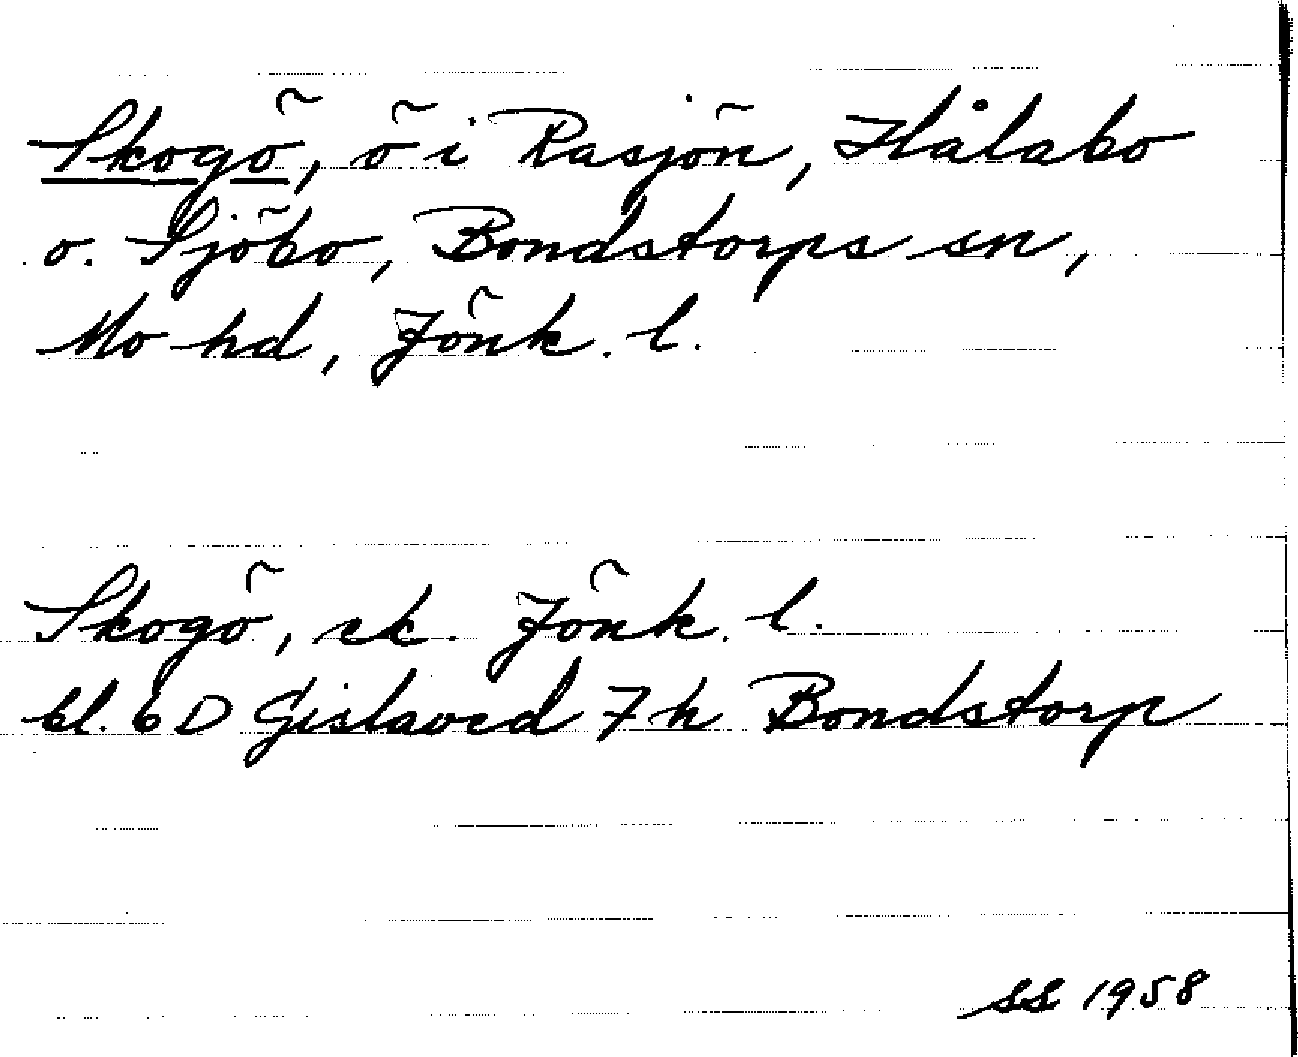 Skogö, ö i Rasjön, Hålabo
o. Sjöbo, Bondstorps sn,
Mo hd, Jönk. l.
Skogö, ek. Jönk. l.
bl. 6 D Gislaved 7 h Bondstorp
SS 1958